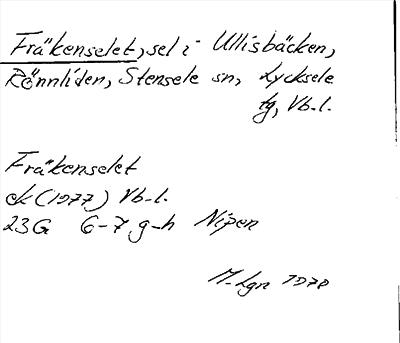 Fräkenselet, sel i Ullisbäcken,
Rönnliden, Stensele sn, Lycksele
tg, Vb.l.
Fräkenselet
ek (1977) Vb.l.
23G 6-7 g-h Nipen
M. Lgn 1978